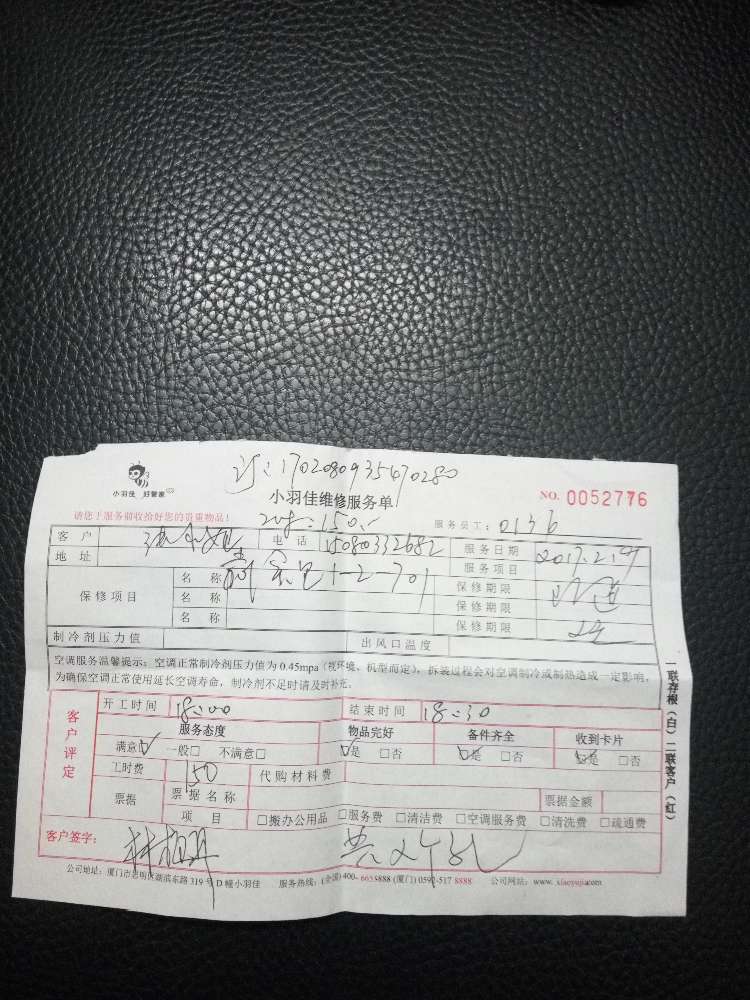 订:1702080935470280
小羽佳 好管家
小羽佳维修服务单
NO. 0052776
请您于服务前收拾好您的贵重物品!
150
服务员工: 0136
客 户 小姐 电 话 15080332682 服务日期 2017.2.9
地 址 1-2-701 服务项目
保修项目 名 称 保修期限
名 称 保修期限
名 称 保修期限
制冷剂压力值 出风口温度
空调服务温馨提示:空调正常制冷剂压力值为 0.45mpa (视环境、机型而定),拆装过程会对空调制冷或制热造成一定影响,
为确保空调正常使用延长空调寿命,制冷剂不足时请及时补充。
客户评定
开工时间 18:00 结束时间 18:30
服务态度 物品完好 备件齐全 收到卡片
满意☑ 一般□ 不满意□ ☑是 □否 ☑是 □否 ☑是 □否
工时费 150 代购材料费
票据 票据名称 票据金额
项 目 □搬办公用品 □服务费 □清洁费 □空调服务费 □清洗费 □疏通费
客户签字:
公司地址:厦门市思明区湖滨东路 319 号 D 幢小羽佳 服务热线:(全国)400-6658888 (厦门) 0592-517 8888 公司网站:www. xiaoyujia.com
一联存根(白) 二联客户(红)